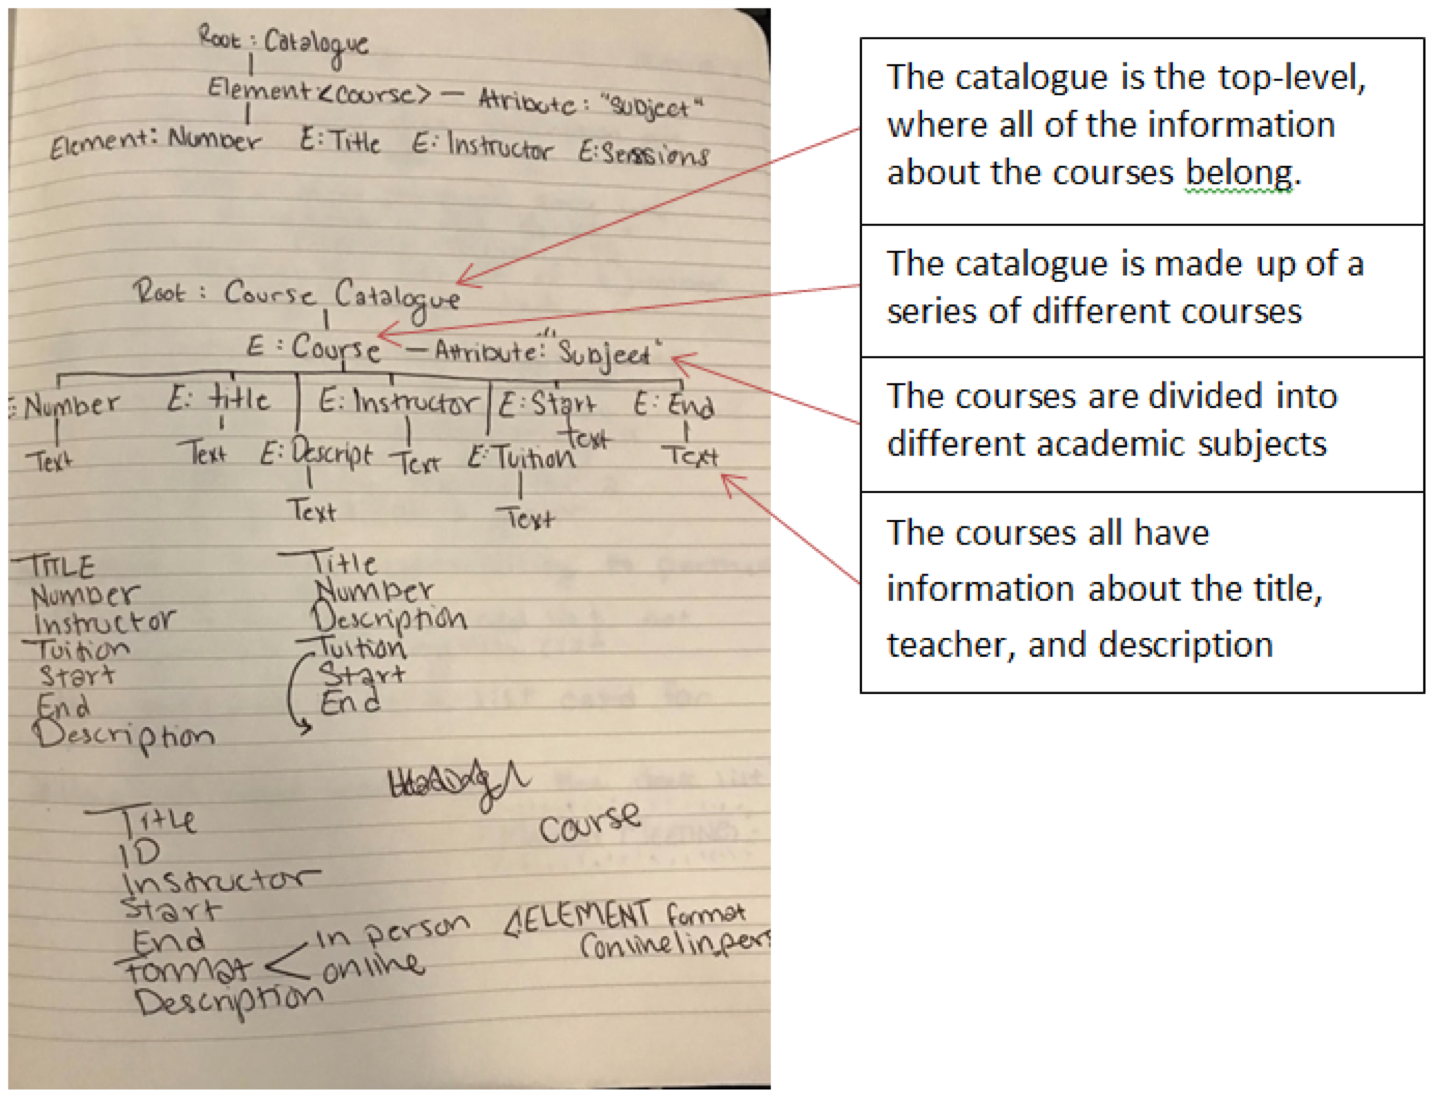 Root : Catalogue
Element <course> — Atribute : "Subject"
Element: Number E: Title E: Instructor E: Sessions
Root : Course Catalogue
E : Course — Attribute: "Subject"
E: Number E: title E: Instructor E: Start E: End
Text Text E: Descript Text E: Tuition text Text
Text Text
TITLE
Number
Instructor
Tuition
Start
End
Description
Title
Number
Description
Tuition
Start
End
Title
ID
Instructor
Start
End
format
Description
in person
online
Course
ELEMENT format
(online|inpers
The catalogue is the top-level,
where all of the information
about the courses belong.
The catalogue is made up of a
series of different courses
The courses are divided into
different academic subjects
The courses all have
information about the title,
teacher, and description